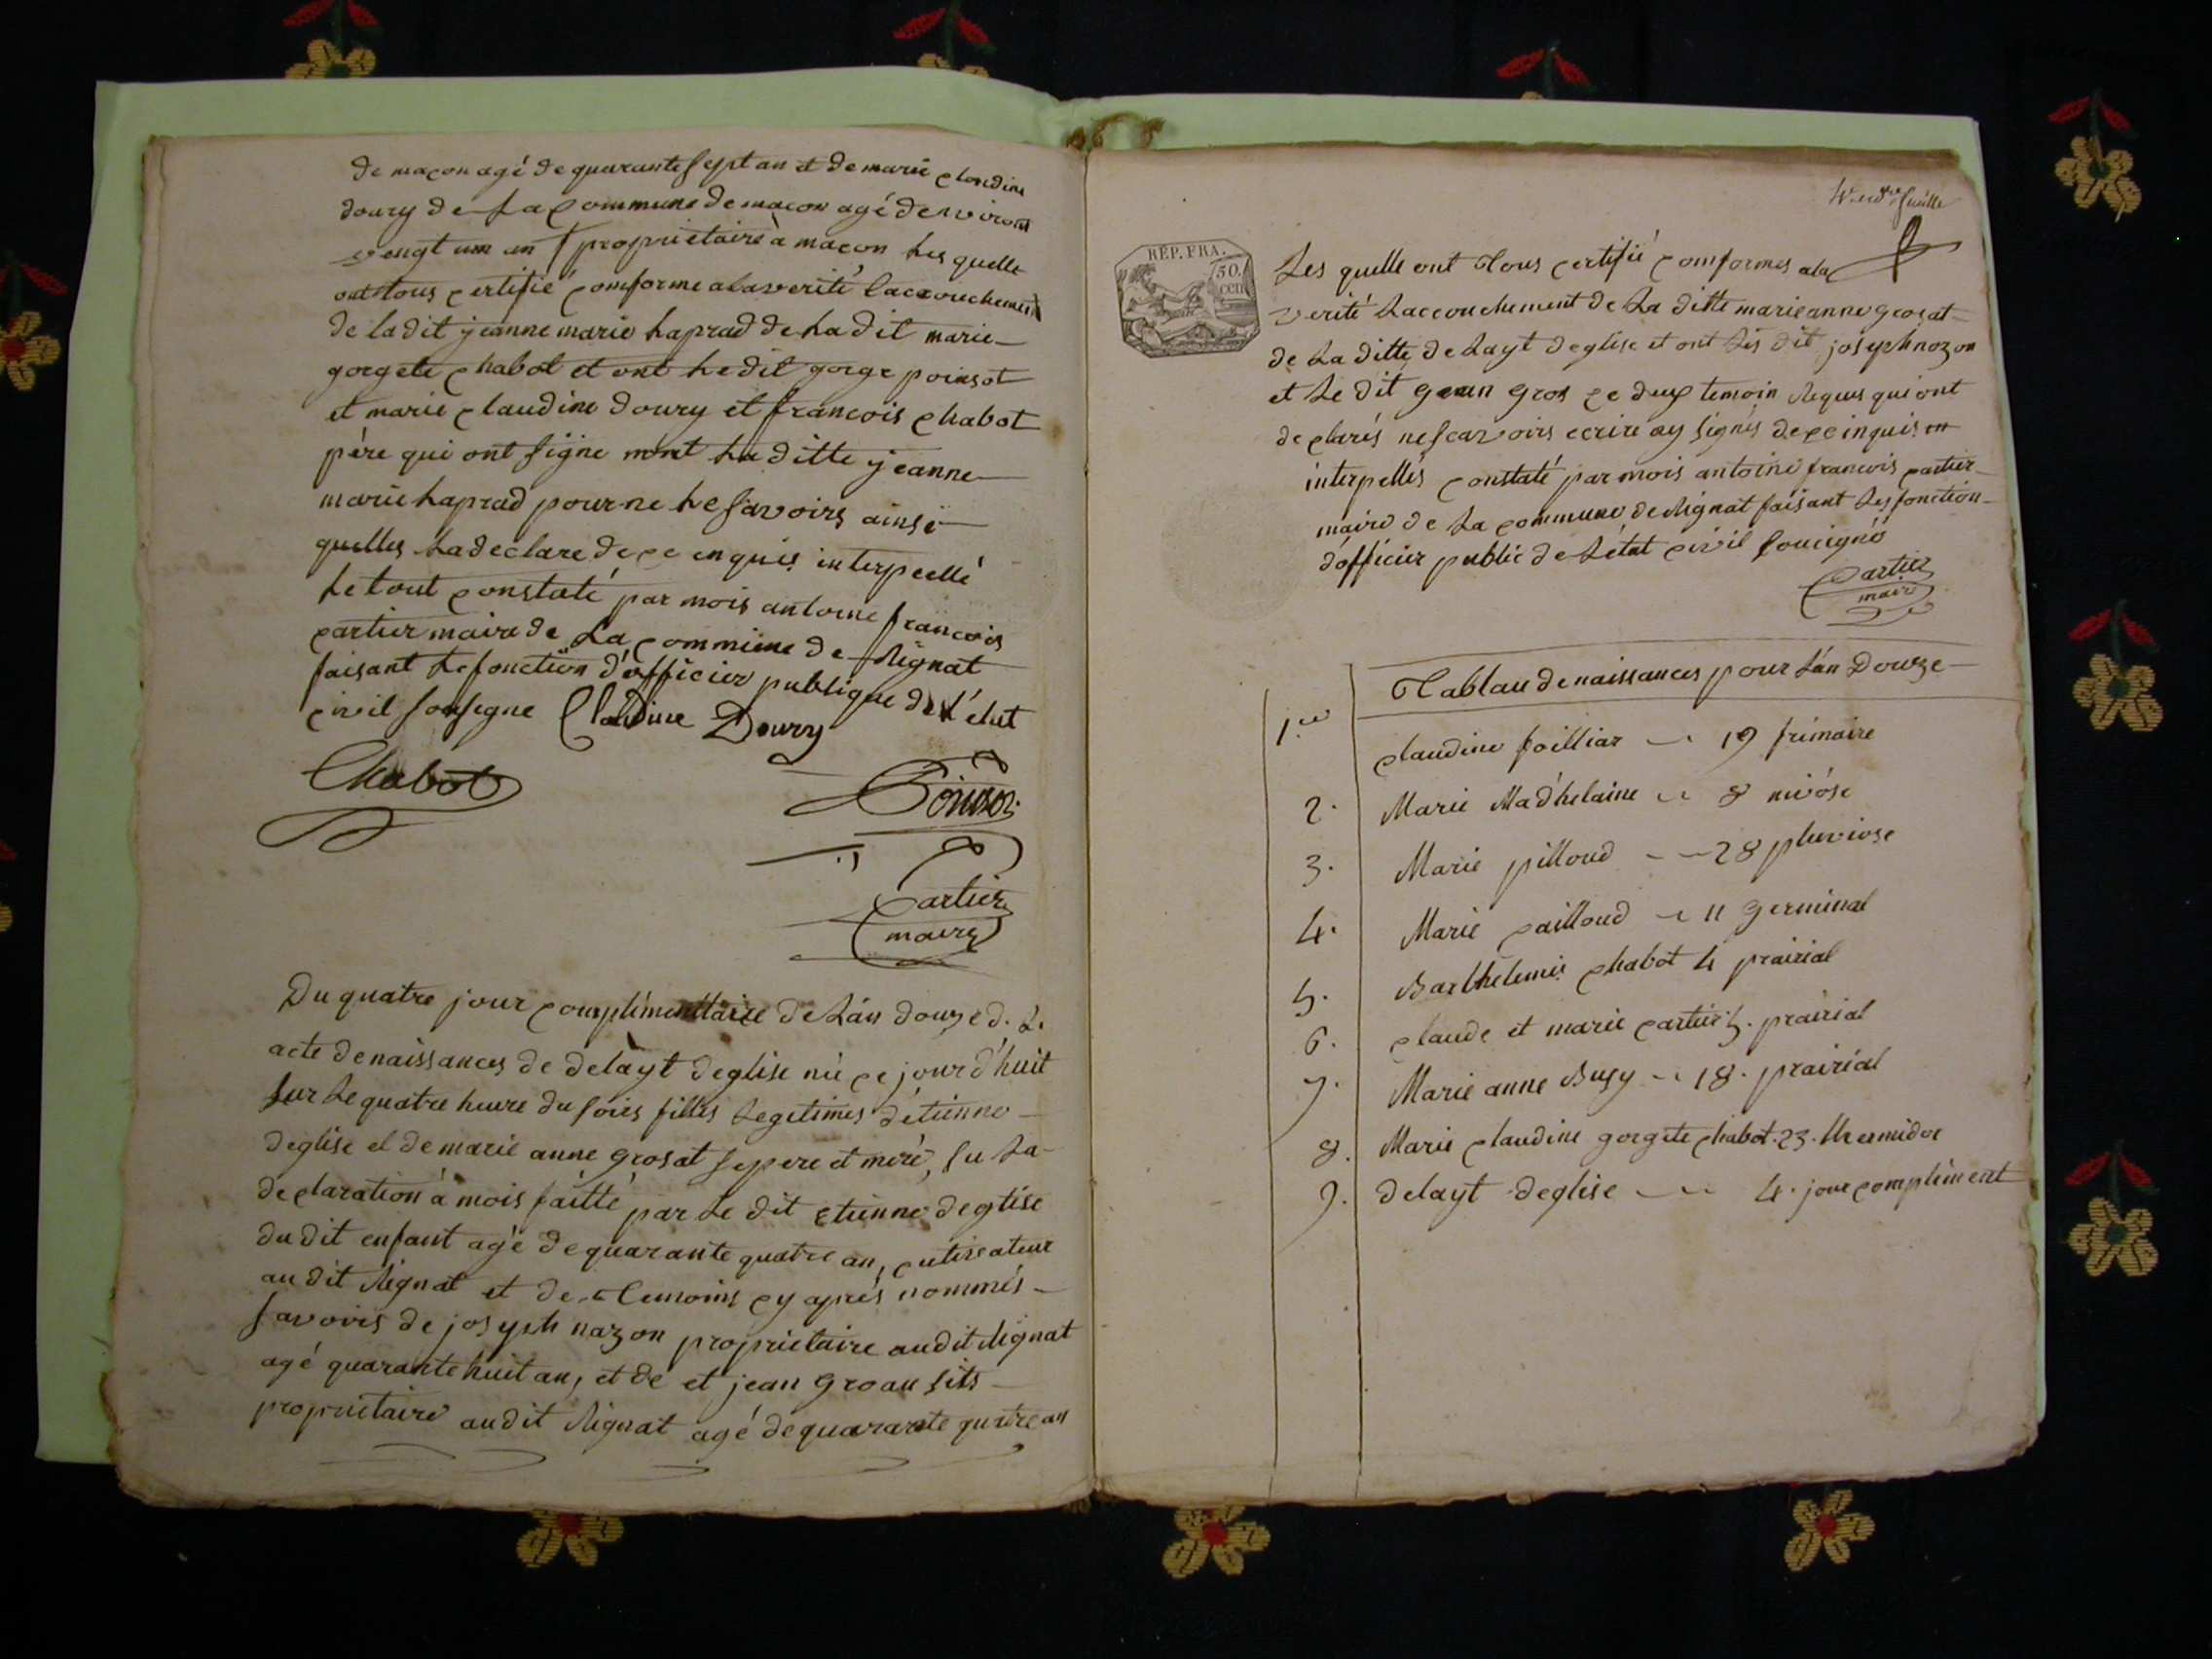 de maçon agé de quarante sept an et de marie claudine
doury de La Commune de macon agé denviront
vengt um an proprietaire à macon Les quelle
ont tous certifié conforme ala verité laccouchement
de ladit jeanne marie Laprad de La dit marie
gorgete chabot et ont Le dit gorge poinsot
et marie claudine doury et francois chabot
père qui ont signe mont La ditte jeanne
marie Laprad pour ne Le savoirs ainsi
quelles La declare de ce enquis interpellé
Le tout constaté par mois antoine francois
cartier maire de La commune de Rignat
faisant Le fonction d'officier publique de L'etat
civil sousigne Claudine Doury
Chabot
Poinsot
Cartier
maire
Du quatre jour complémenttaire de L'án douze d. L.
acte denaissances de delayt deglise née ce jour d'huit
sur Le quatre heure du soirs filles Legetimes d'étienne
deglise et de marie anne grosat se pere et mere, su La
declaration à mois faitte par Le dit etienne deglise
du dit enfant agé de quarante quatre an, cutivateur
au dit Rignat et de temoins cy aprés nommés
savoirs de josyeh nazon proprietaire audit Rignat
agé quarante huit an, et de et jean gros au sits
proprietaire audit Rignat agé de quarante quatre an
feuille
RÉP. FRA.
50.
cen
Les quelle ont Tous certifié comformes ala
verité Laccouchement de La ditte marie anne grosat
de La ditte delayt deglise et ont Les dit josyeh nozon
et Le dit jean gros ce deux temoin Requs qui ont
declarés ne scavoirs ecrire ny signés de ce inquis
interpellés constaté par mois antoine francois cartier
maire de La commune de Rignat faisant Les fonction
dofficier public de L'état civil souxigné
Cartier
maire
Tablau denaissances pour L'an Douze
1.er claudine foilliar 19 frimaire
2. Marie Madhelaine 8 nivóse
3. Marie pilloud 28 pluviose
4. Marie cailloud 11 germinal
5. Barthelemis chabot 4 prairial
6. claude et marie cartier 5. prairial
7. Marie anne Bugy 18. prairial
8. Marie claudine gorgete chabot. 23. thermidor
9. delayt deglise 4. jour compliment